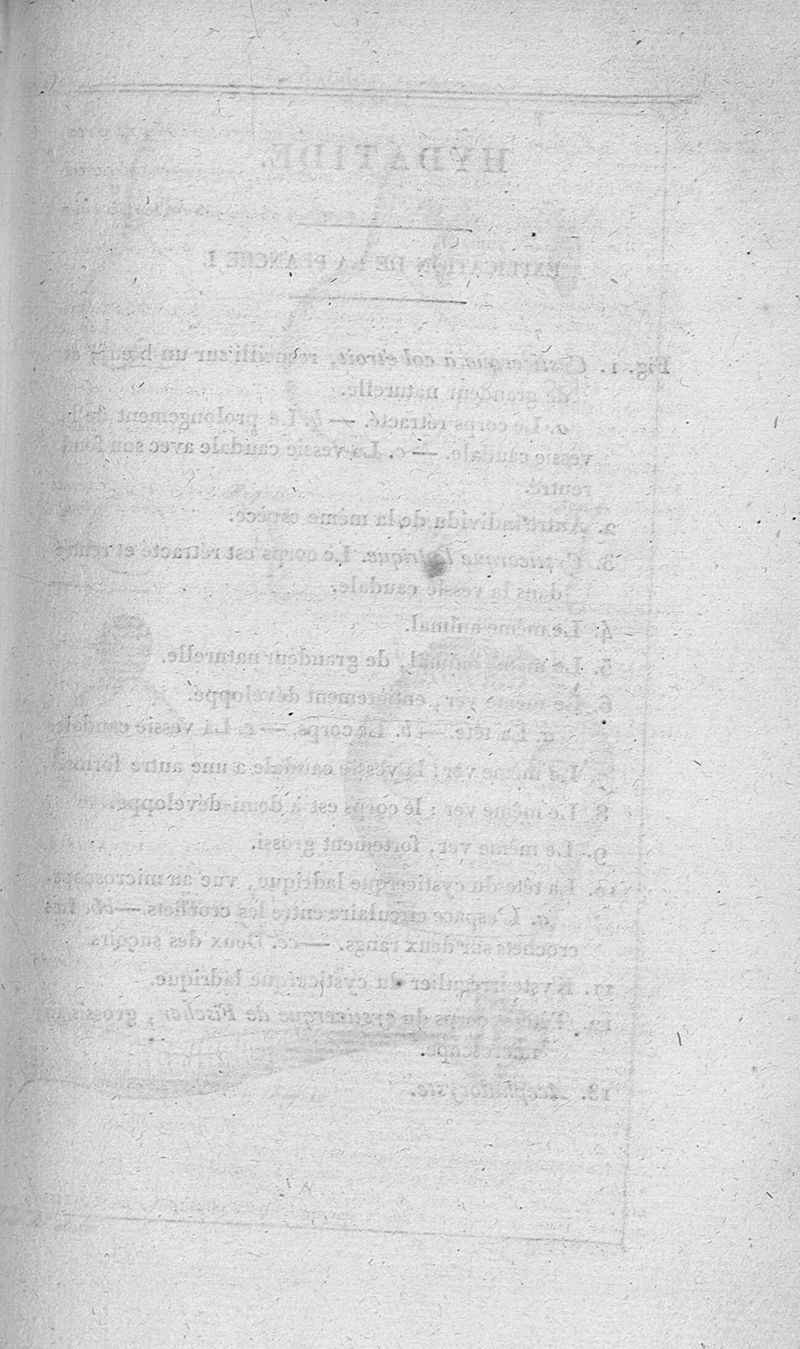 HYDATIDE.
EXPLICATION DE LA PLANCHE I.
Fig. 1. Cysticerque à col étroit, recueilli sur un
de grandeur naturelle.
a. Le corps rétracté. — b. Le prolongement de la
vessie caudale. — c. La vessie caudale avec son fond
rentré.
2. Autre individu de la même espèce.
3. Cysticerque ladrique. Le corps est rétracté et rentré
dans la vessie caudale.
4. Le même animal.
5. Le même animal, de grandeur naturelle.
6. Le même ver, entièrement développé.
a. La tête. — b. Le corps. — c. La vessie caudale.
7. Le même ver : la vessie caudale a une autre forme.
8. Le même ver : le corps est à demi-développé.
9. Le même ver, fortement grossi.
10. La tête du cysticerque ladrique, vue au microscope.
a. L'espace circulaire entre les crochets. — bb. Les
crochets sur deux rangs. — cc. Deux des suçoirs.
11. Kyste irrégulier du cysticerque ladrique.
12. Tête et corps du cysticerque de Fischer, grossis au
microscope.
13. Acéphalocyste.